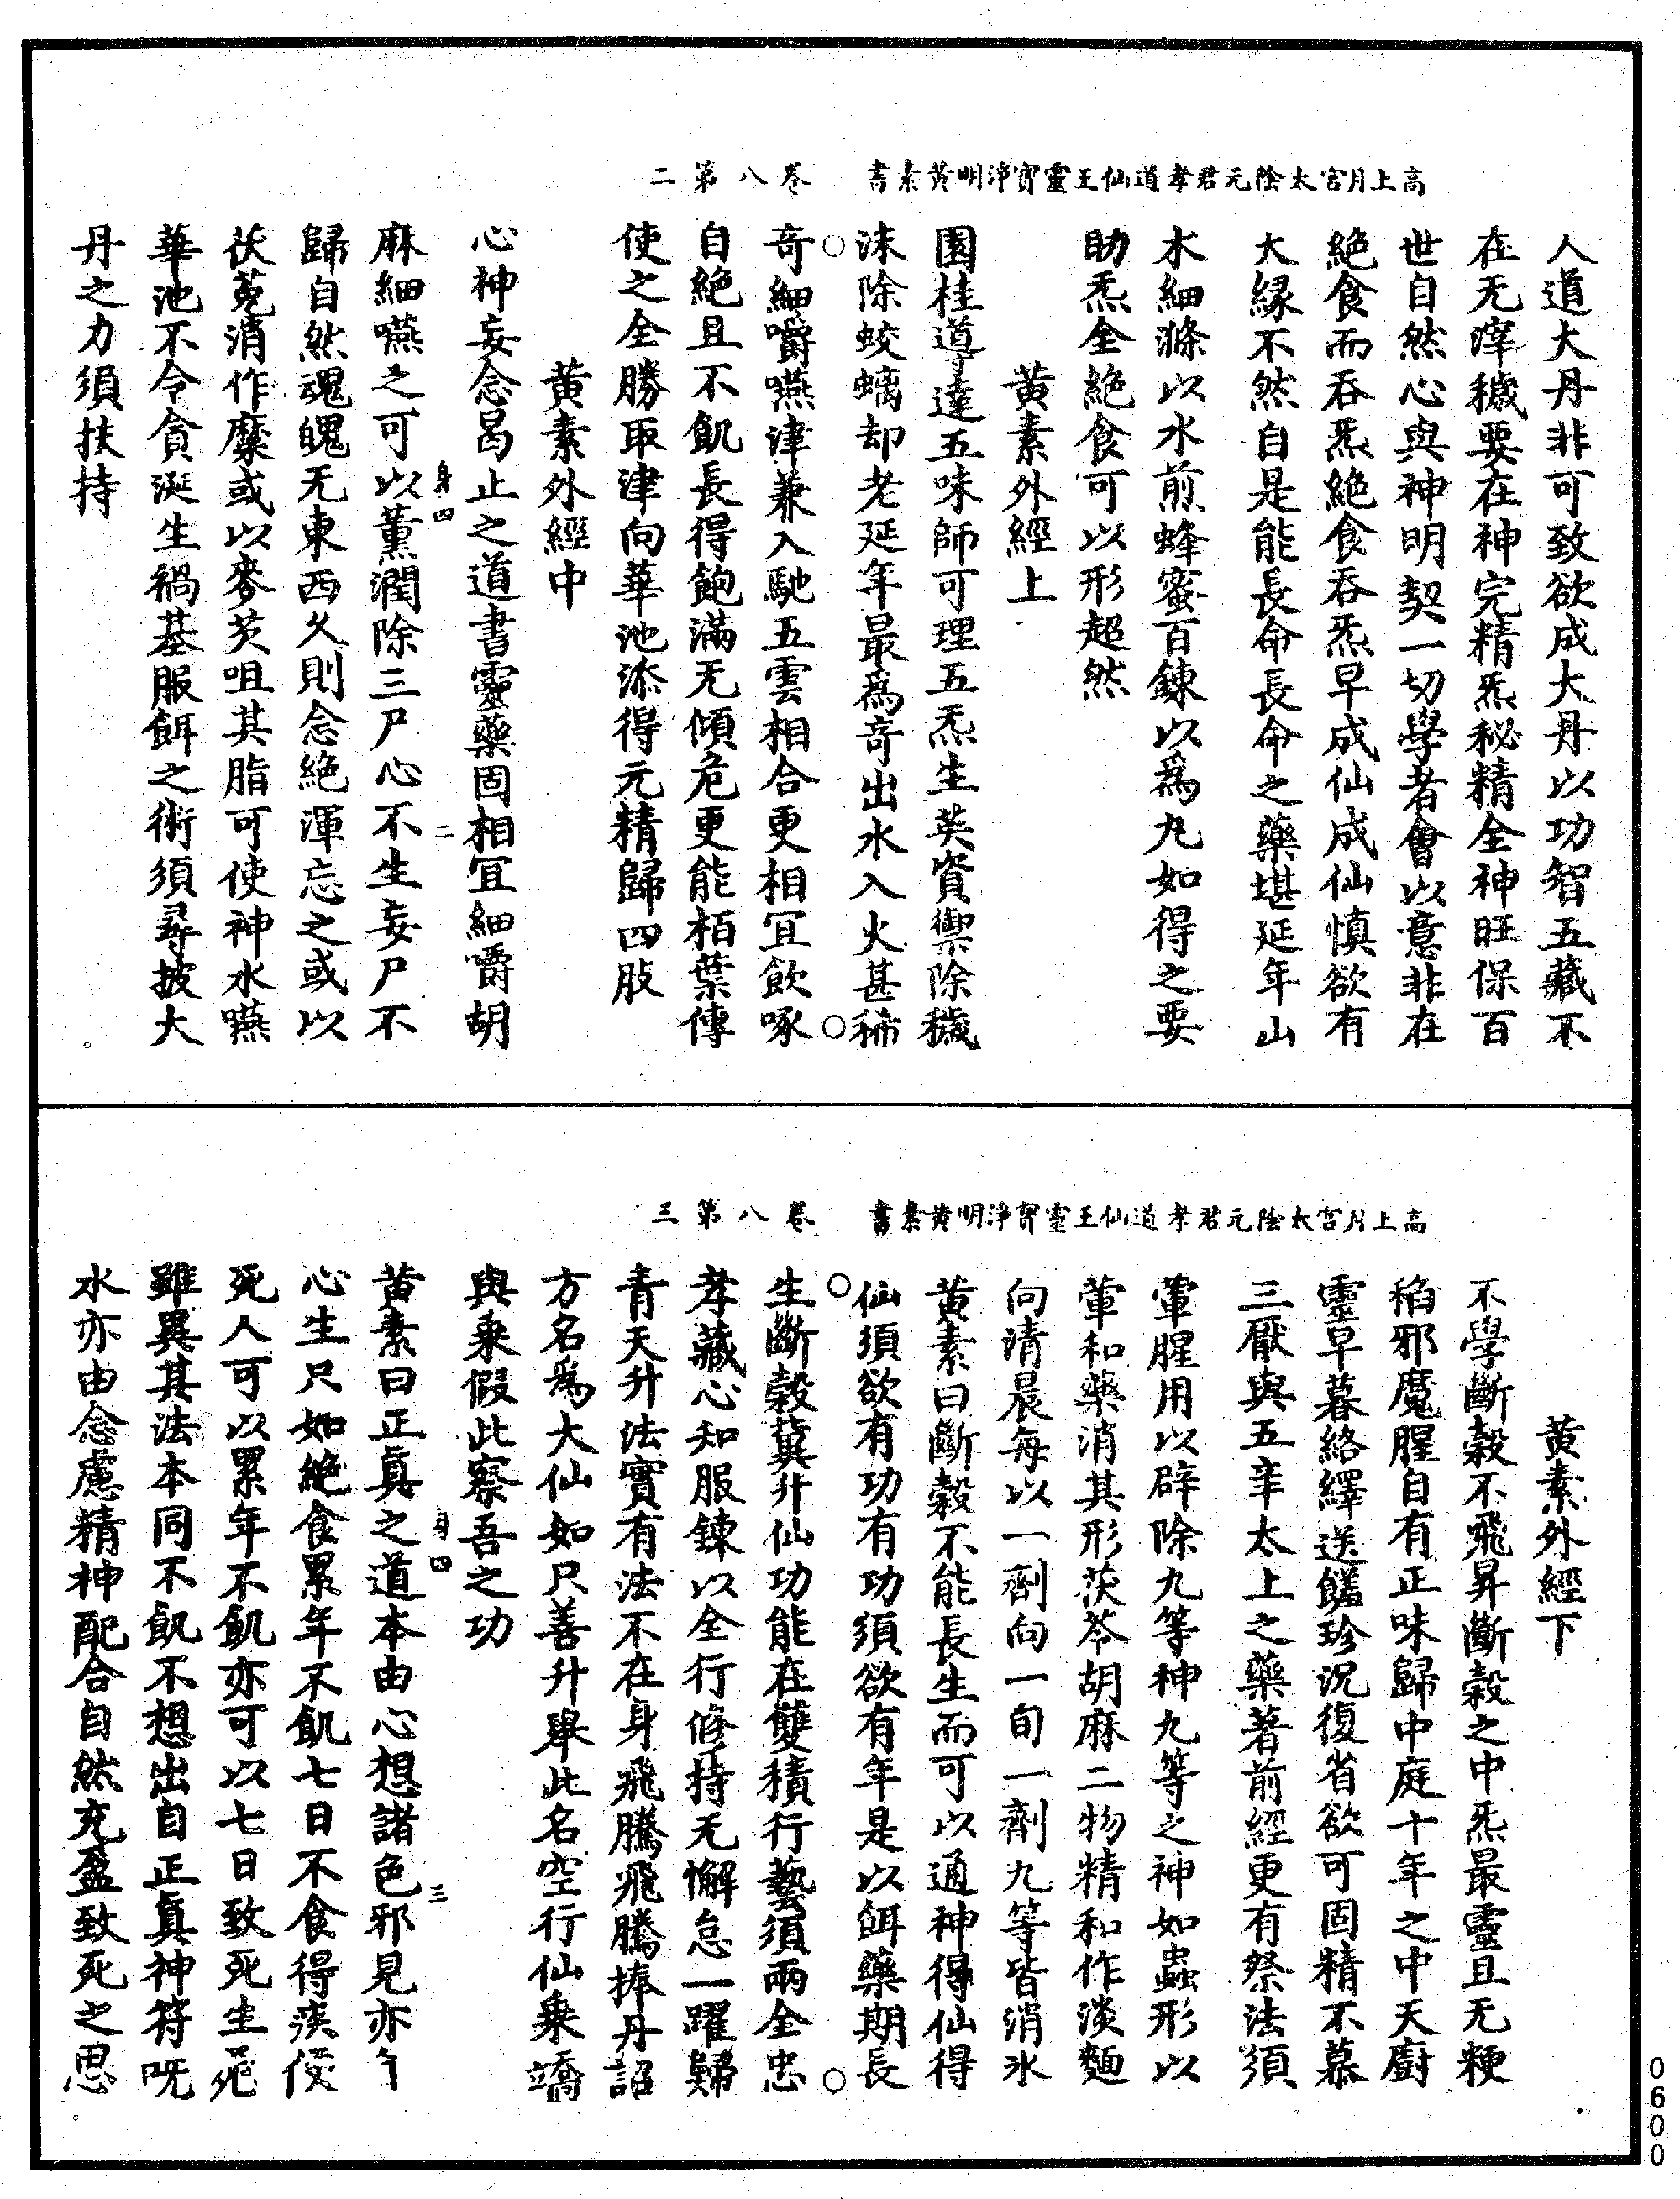 高上月宮太陰元君孝道仙王靈寳淨明黃素書　卷八第二
人道大丹非可致欲成大丹以功智五藏不
在无滓穢要在神完精炁秘精全神旺保百
世自然心與神明契一切學者會以意非在
絶食而吞炁絶食吞炁早成仙成仙慎欲有
大縁不然自是能長命長命之藥堪延年山
木細滌以水煎蜂蜜百鍊以爲丸如得之要
助炁全絶食可以形超然
黄素外經上
園桂道導達五味師可理五炁生英資禦除穢
沫除蛟螭却老延年最爲竒出水入火甚稀
竒細嚼嚥津兼入馳五雲相合更相冝飲啄
自絶且不飢長得飽滿无傾危更能栢葉傳
使之全勝取津向華池添得元精歸四肢
黄素外經中
心神妄念曷止之道書靈藥固相冝細嚼胡
麻細嚥之可以薰潤除三尸心不生妄尸不
身四　二
歸自然魂魄无東西久則念絶渾忘之或以
茯菟消作糜或以麥芡咀其脂可使神水嚥
華池不令貪涎生禍基服餌之術須尋披大
丹之力須扶持
高上月宮太陰元君孝道仙王靈寳淨明黃素書　卷八第三
黄素外經下
不學斷穀不飛昇斷穀之中炁最靈且无粳
稻邪魔腥自有正味歸中庭十年之中天廚
靈早暮絡繹送饈珍況復省欲可固精不慕
三厭與五辛太上之藥著前經更有祭法須
葷腥用以辟除九等神九等之神如蟲形以
葷和藥消其形茨苓胡麻二物精和作淡麵
向清晨每以一劑向一旬一劑九等皆消氷
黄素曰斷穀不能長生而可以通神得仙得
仙須欲有功有功須欲有年是以餌藥期長
生斷穀冀升仙功能在雙積行藝須兩全忠
孝藏心知服鍊以全行修持无懈怠一躍歸
青天升法實有法不在身飛騰飛騰捧丹詔
方名爲大仙如只善升舉此名空行仙乗蹻
與乗假此察吾之功
黄素曰正真之道本由心想諸色邪見亦
身四　三
心生只如絶食累年不飢七日不食得疾便
死人可以累年不飢亦可以七日致死生死
雖異其法本同不飢不想出自正真神符呪
水亦由念慮精神配合自然充盈致死之思
0600